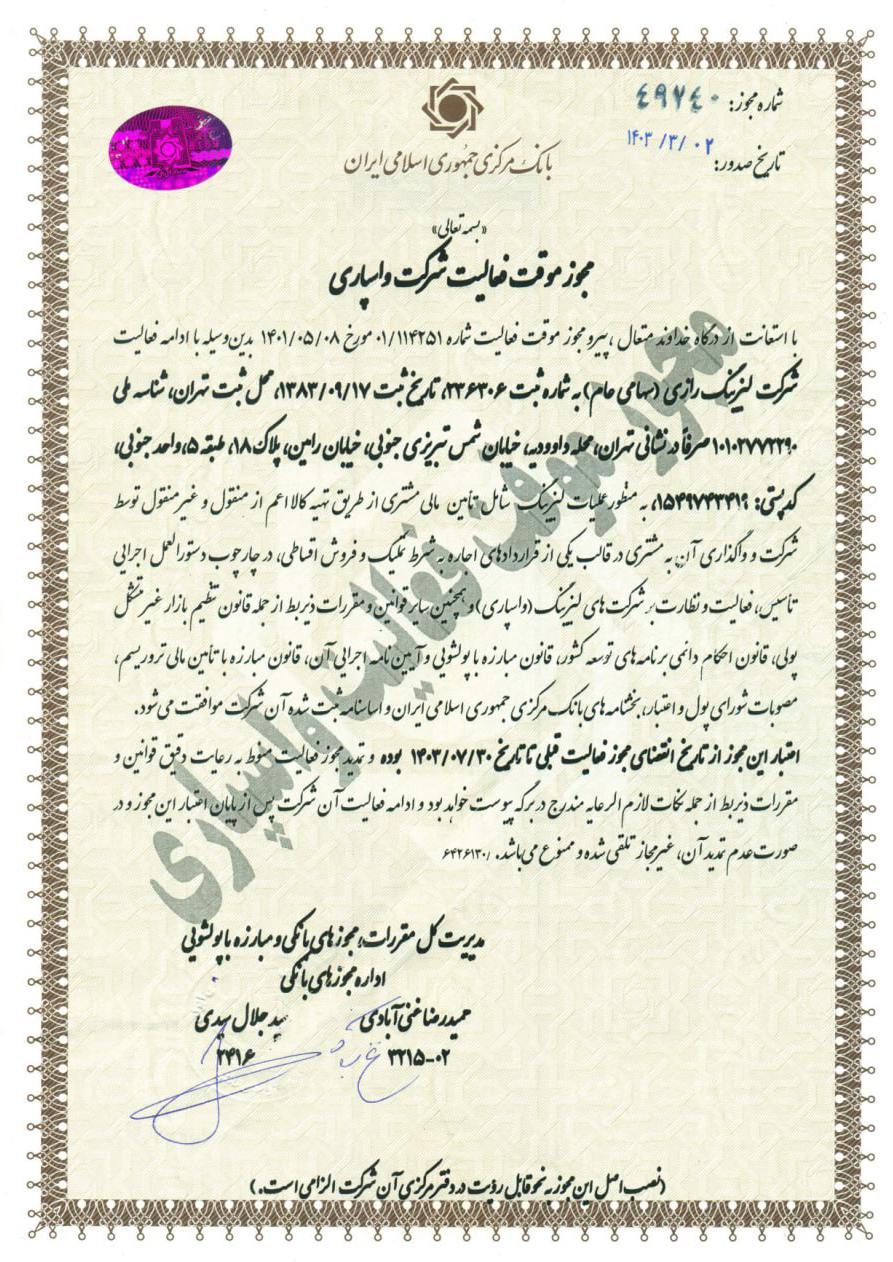 شماره مجوز: ٤٩٧٤٠
تاریخ صدور: ۱۴۰۳/۳/۰۲
بانک مرکزی جمهوری اسلامی ایران
«بسمه تعالی»
مجوز موقت فعالیت شرکت واسپاری
با استعانت از درگاه خداوند متعال، پیرو مجوز موقت فعالیت شماره ۰۱/۱۱۴۲۵۱ مورخ ۱۴۰۱/۰۵/۰۸ بدین‌وسیله با ادامه فعالیت
شرکت لیزینگ رازی (سهامی عام) به شماره ثبت ۲۳۶۳۰۶، تاریخ ثبت ۱۳۸۳/۰۹/۱۷، محل ثبت تهران، شناسه ملی
۱۰۱۰۲۷۷۲۲۹۰ صرفاً در نشانی تهران، محله داوودیه، خیابان شمس تبریزی جنوبی، خیابان رامین، پلاک ۱۸، طبقه ۵، واحد جنوبی،
کدپستی: ۱۵۴۹۷۴۳۴۱۹، به منظور عملیات لیزینگ شامل تأمین مالی مشتری از طریق تهیه کالا اعم از منقول و غیرمنقول توسط
شرکت و واگذاری آن به مشتری در قالب یکی از قراردادهای اجاره به شرط تملیک و فروش اقساطی، در چارچوب دستورالعمل اجرایی
تأسیس، فعالیت و نظارت بر شرکت‌های لیزینگ (واسپاری) و همچنین سایر قوانین و مقررات ذیربط از جمله قانون تنظیم بازار غیر متشکل
پولی، قانون احکام دائمی برنامه‌های توسعه کشور، قانون مبارزه با پولشویی و آیین نامه اجرایی آن، قانون مبارزه با تأمین مالی تروریسم،
مصوبات شورای پول و اعتبار، بخشنامه‌های بانک مرکزی جمهوری اسلامی ایران و اساسنامه ثبت شده آن شرکت موافقت می‌شود.
اعتبار این مجوز از تاریخ انقضای مجوز فعالیت قبلی تا تاریخ ۱۴۰۳/۰۷/۳۰ بوده و تمدید مجوز فعالیت منوط به رعایت دقیق قوانین و
مقررات ذیربط از جمله نکات لازم الرعایه مندرج در برگه پیوست خواهد بود و ادامه فعالیت آن شرکت پس از پایان اعتبار این مجوز و در
صورت عدم تمدید آن، غیرمجاز تلقی شده و ممنوع می‌باشد. /۶۴۲۶۱۳۰
مجوز موقت فعالیت واسپاری
مدیریت کل مقررات، مجوزهای بانکی و مبارزه با پولشویی
اداره مجوزهای بانکی
حمیدرضا غنی‌آبادی سید جلال سیدی
۳۲۱۵-۰۲ ۲۴۱۶
(نصب اصل این مجوز به نحو قابل رؤیت در دفتر مرکزی آن شرکت الزامی است.)